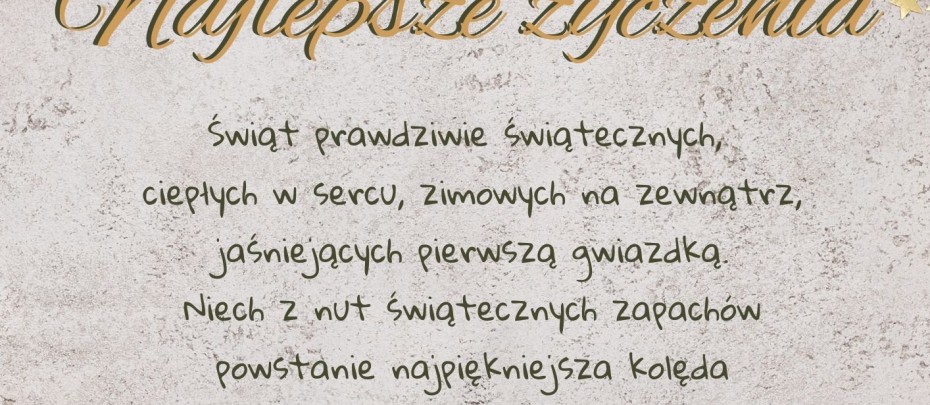 Najlepsze życzenia
Świąt prawdziwie świątecznych,
ciepłych w sercu, zimowych na zewnątrz,
jaśniejących pierwszą gwiazdką.
Niech z nut świątecznych zapachów
powstanie najpiękniejsza kolęda